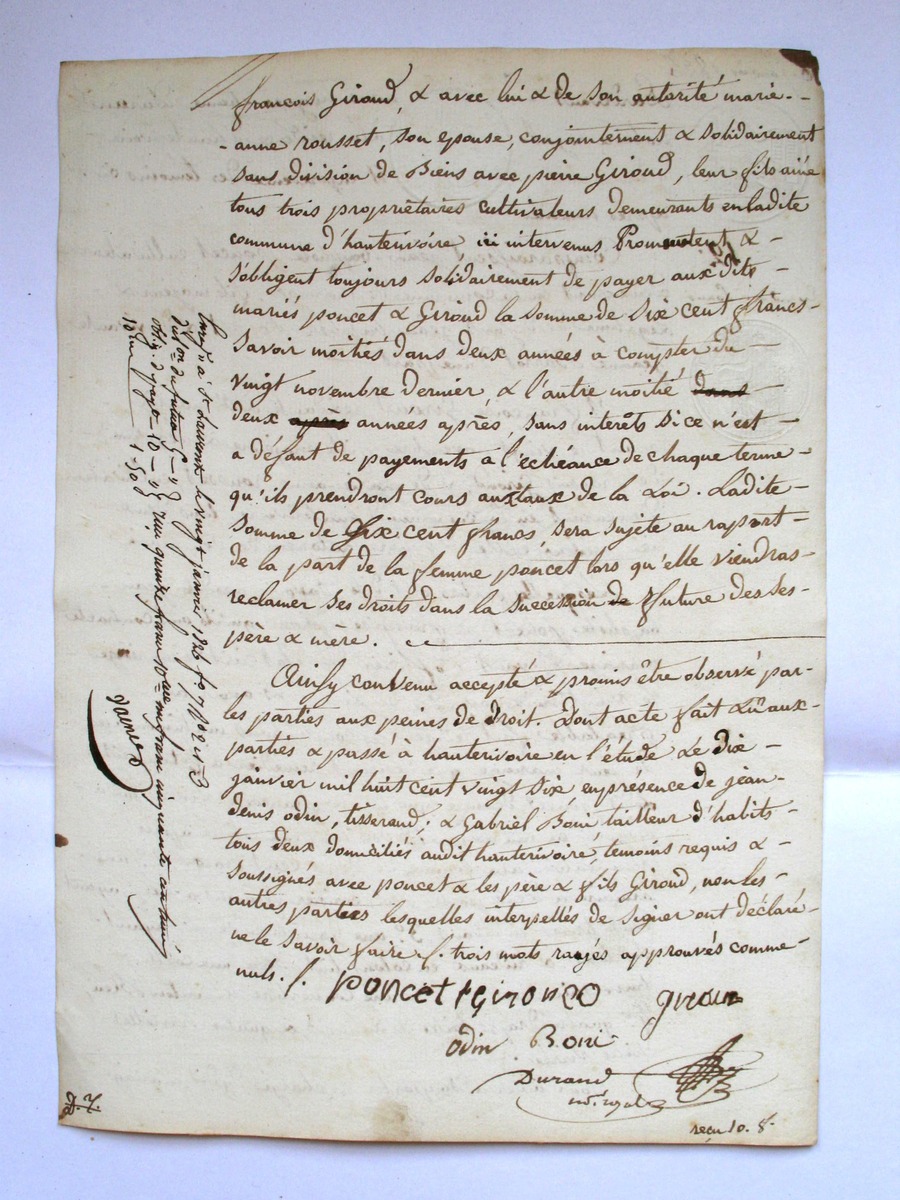 françois Giroud, & avec lui & de son autorité marie-
-anne rousset, son epouse, conjointement & solidairement
sans division de Biens avec pierre Giroud, leur fils ainé
tous trois propriétaires cultivateurs demeurants en ladite
commune d'hauterivoire ici intervenus Promettent & -
s'obligent toujours solidairement de payer aux dits -
mariés poncet & Giroud la somme de six cent francs -
savoir moitiés dans deux années à compter du -
vingt novembre dernier, & l'autre moitié dans -
deux après années après, sans interêts si ce n'est -
a défaut de payements à l'echéance de chaque terme -
qu'ils prendront cours aux taux de la Loi. Ladite -
somme de six cent francs, sera sujete au rapport -
de la part de la femme poncet lors qu'elle viendras -
reclamer ses droits dans la succession de future des ses -
père & mère.
Ainsy convenu accepté & promis être observé par -
les parties aux peines de droit. Dont acte fait & lû aux -
parties & passé à hauterivoire en l'étude Le dix -
janvier mil huit cent vingt six, en présence de jean -
denis odin, tisserand, & Gabriel Boni tailleur d'habits -
tous deux domiciliés audit hauterivoire, temoins requis & -
soussignés avec poncet & les père & fils Giroud, non les -
autres parties lesquelles interpellés de signer ont déclaré -
ne le savoir faire /. trois mots rayés approuvés comme -
nuls. /.
poncet Giroud giroud
odin Boni
Durand
no.re royal
reçu 10. 8.
D. 7.
Enreg.ré à St Laurent le vingt janvier 1826 f.o 7
don du futur 5 - "
oblig. de payt 10 - "
10.me 1 - 50
reçu quinze francs 10.me un franc cinquante centimes